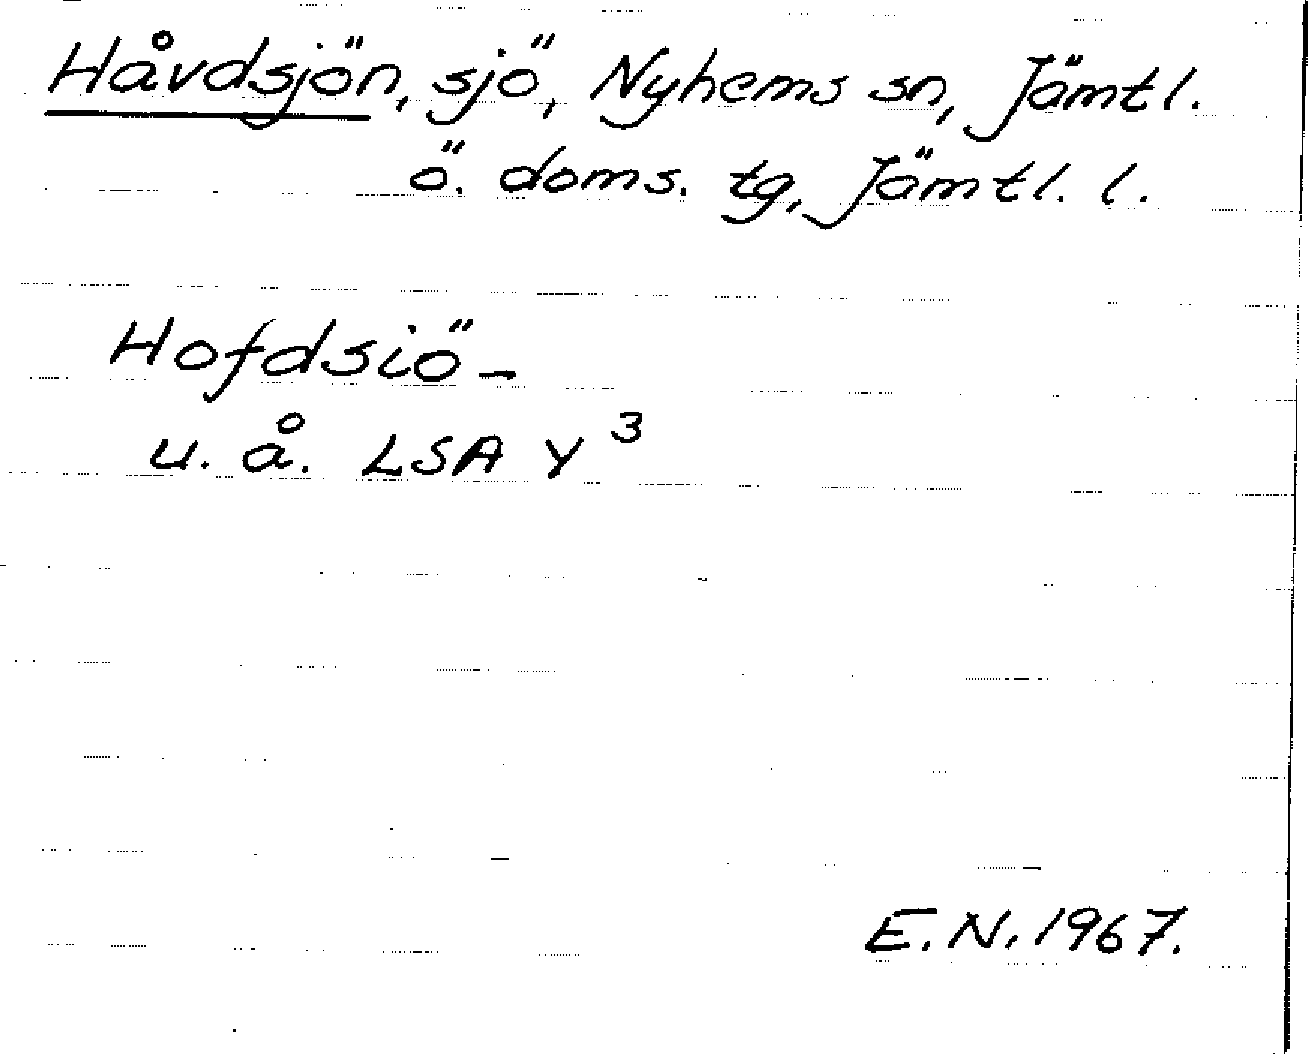 Håvdsjön, sjö, Nyhems sn, Jämtl.
ö. doms. tg, Jämtl. l.
Hofdsiö-
u. å. LSA Y³
E.N. 1967.